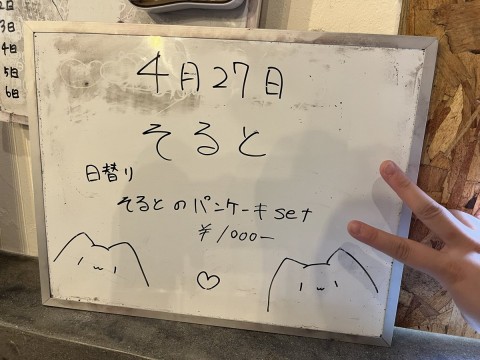 3日
4日
5日
6日
4月27日
そると
日替り
そるとのパンケーキset
¥1000-